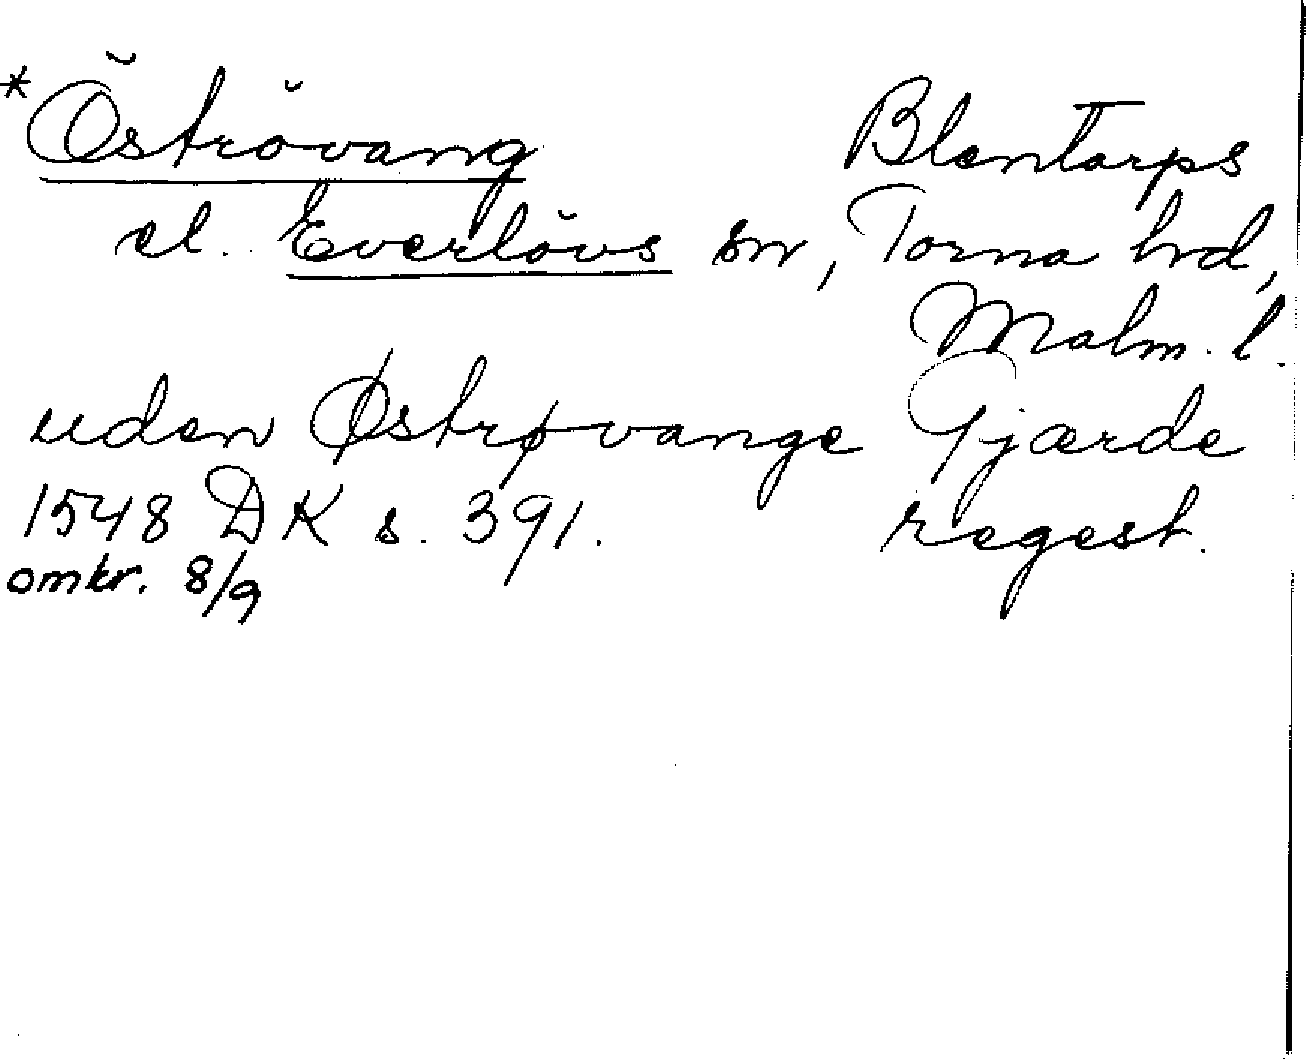 *Öströvang Blentarps
el. Everlövs sn, Torna hd,
Malm. l.
uden Østrøvange Gjærde
1548 DK s. 391. regest.
omkr. 8/9